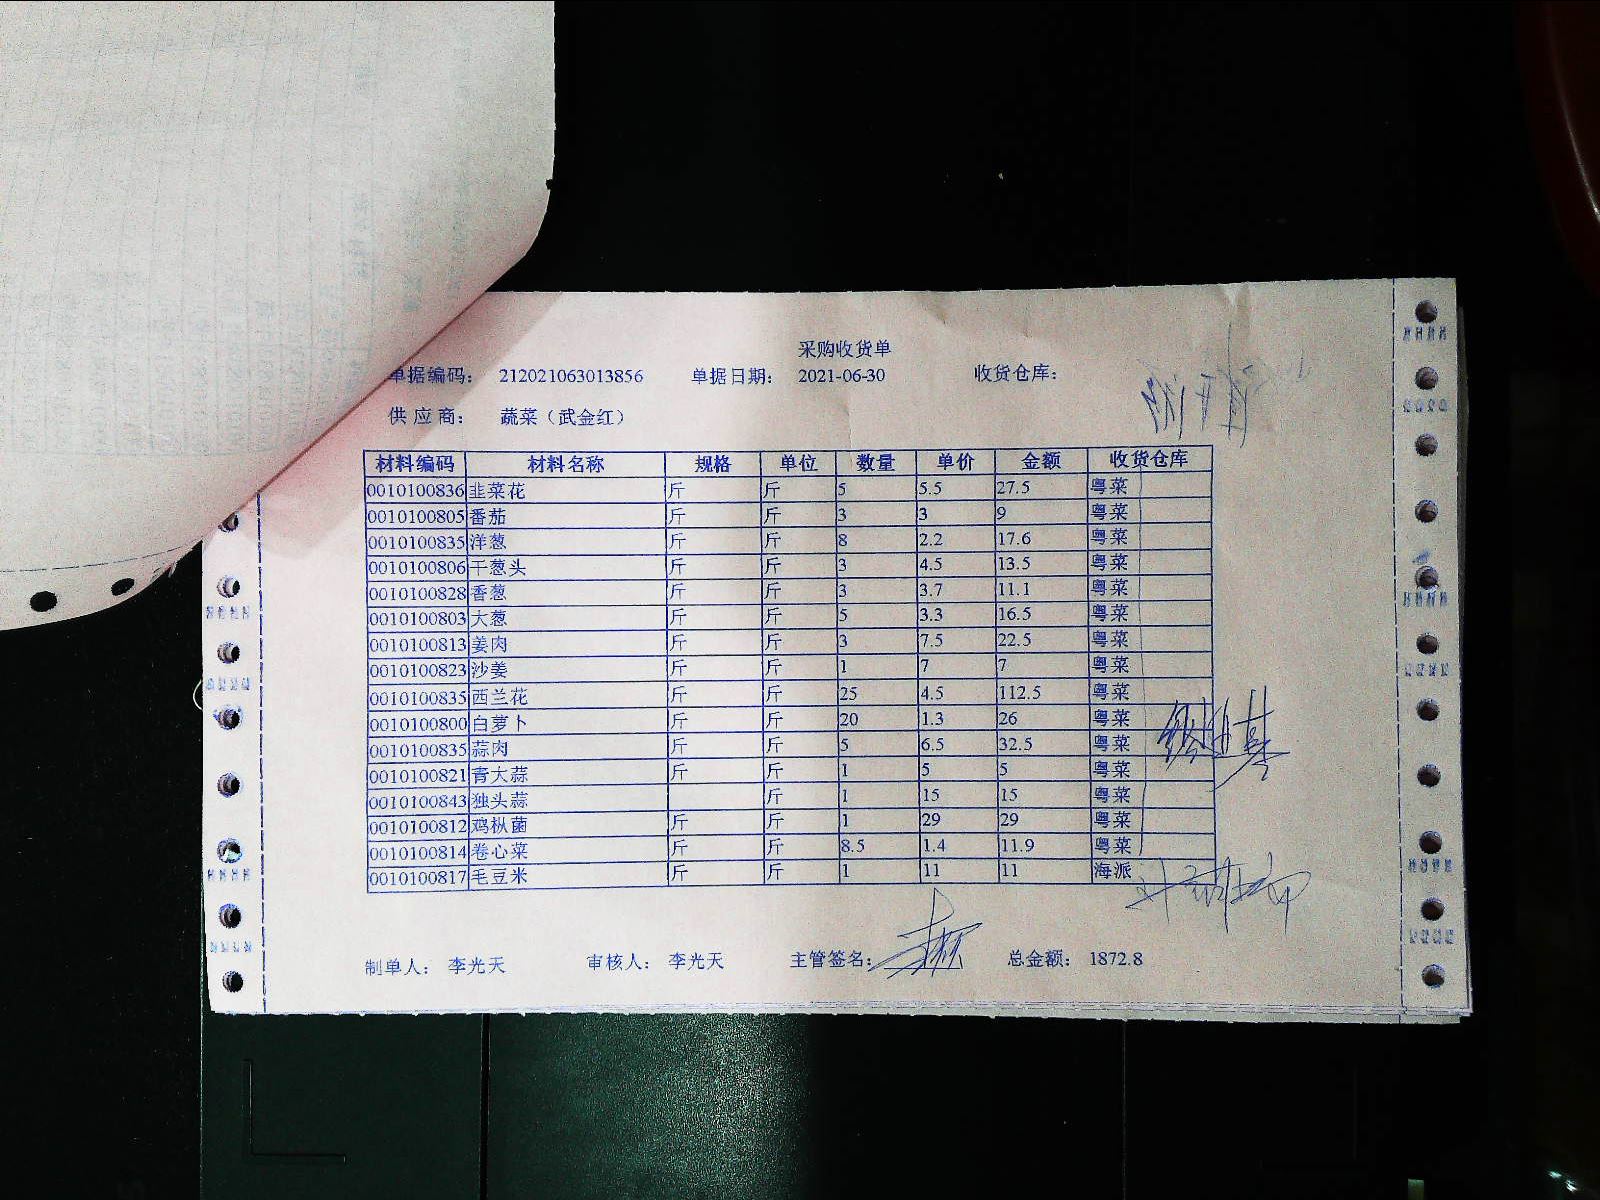 采购收货单
单据编码： 212021063013856 单据日期： 2021-06-30 收货仓库：
供应商： 蔬菜（武金红）
材料编码 材料名称 规格 单位 数量 单价 金额 收货仓库
0010100836 韭菜花 斤 斤 5 5.5 27.5 粤菜
0010100805 番茄 斤 斤 3 3 9 粤菜
0010100835 洋葱 斤 斤 8 2.2 17.6 粤菜
0010100806 干葱头 斤 斤 3 4.5 13.5 粤菜
0010100828 香葱 斤 斤 3 3.7 11.1 粤菜
0010100803 大葱 斤 斤 5 3.3 16.5 粤菜
0010100813 姜肉 斤 斤 3 7.5 22.5 粤菜
0010100823 沙姜 斤 斤 1 7 7 粤菜
0010100835 西兰花 斤 斤 25 4.5 112.5 粤菜
0010100800 白萝卜 斤 斤 20 1.3 26 粤菜
0010100835 蒜肉 斤 斤 5 6.5 32.5 粤菜
0010100821 青大蒜 斤 斤 1 5 5 粤菜
0010100843 独头蒜 斤 1 15 15 粤菜
0010100812 鸡枞菌 斤 斤 1 29 29 粤菜
0010100814 卷心菜 斤 斤 8.5 1.4 11.9 粤菜
0010100817 毛豆米 斤 斤 1 11 11 海派
制单人： 李光天 审核人： 李光天 主管签名： 总金额： 1872.8